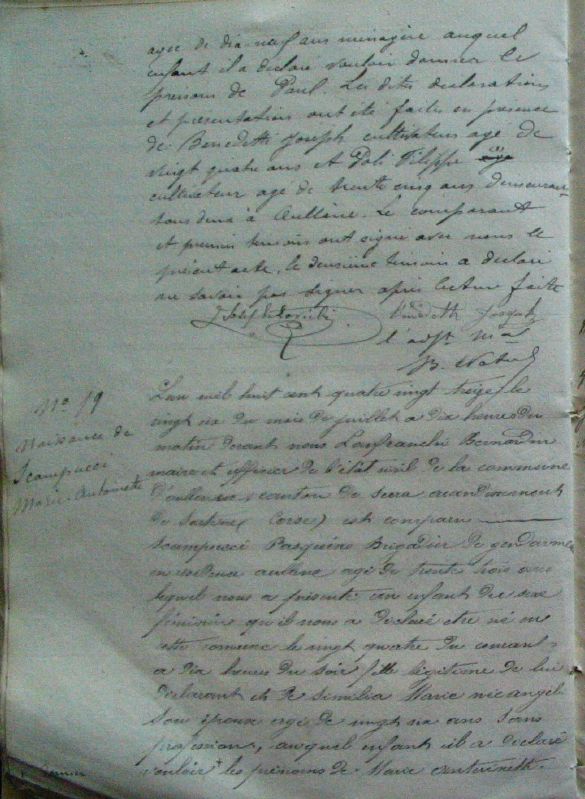 agée de dix neuf ans ménagère auquel
enfant il a déclaré vouloir donner le
prenom de Paul. Les dites declarations
et présentations ont été faites en présence
de Benedetti Joseph cultivateur agé de
vingt quatre ans et Poli Filippe
cultivateur agé de trente cinq ans demeurant
tous deux à Aullène. Le comparant
et premier temoin ont signé avec nous le
présent acte, le deuxième temoin a déclaré
ne savoir pas signer après lecture faite
Benedetti Joseph
l'adjt
No 19
Naissance de
Scampucci
Marie-Antoinette
L'an mil huit cent quatre vingt treize, le
vingt six du mois de juillet a dix heures du
matin devant nous Lanfranchi Bernardin
maire et officier de l'état civil de la commune
d'aullene canton de Serra arrondissement
de Sartene (Corse) est comparu
Scampucci Pasquino Brigadier de gendarmerie
en residence aullene agé de trente trois ans
lequel nous a présenté un enfant du sexe
féminin qu'il nous a déclaré etre né en
cette commune le vingt quatre du courant
a dix heures du soir fille légitime de lui
déclarant et de Marie
son épouse agé de vingt six ans sans
profession, auquel enfant il a declaré
vouloir les prénoms de Marie antoinette.